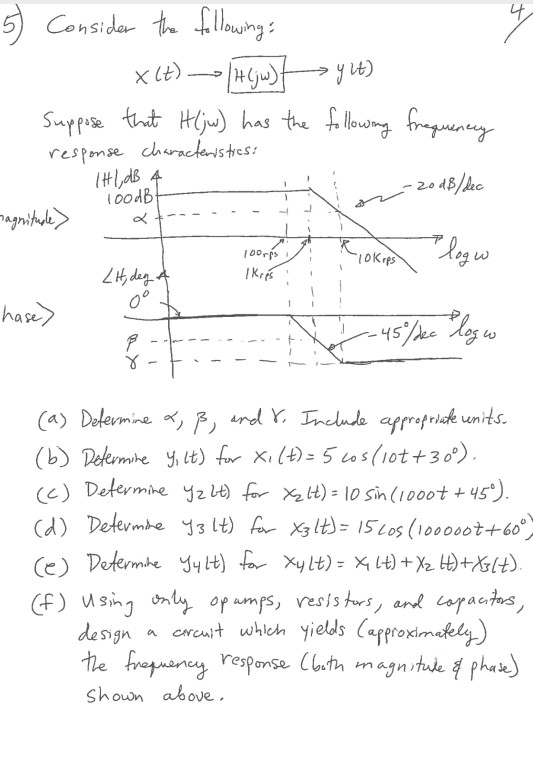 5) Consider the following: 4
x(t) → H(jω) → y(t)
Suppose that H(jω) has the following frequency
response characteristics:
|H|, dB
100dB
-20dB/dec
agnitude>
α
100rps
1Krps
10Krps
log ω
∠H, deg
0°
hase>
β
-45°/dec
log ω
γ
(a) Determine α, β, and γ. Include appropriate units.
(b) Determine y₁(t) for x₁(t) = 5 cos(10t+30°).
(c) Determine y₂(t) for x₂(t) = 10 sin(1000t + 45°).
(d) Determine y₃(t) for x₃(t) = 15 cos(100000t+60°)
(e) Determine y₄(t) for x₄(t) = x₁(t) + x₂(t) + x₃(t).
(f) Using only opamps, resistors, and capacitors,
design a circuit which yields (approximately)
the frequency response (both magnitude & phase)
shown above.